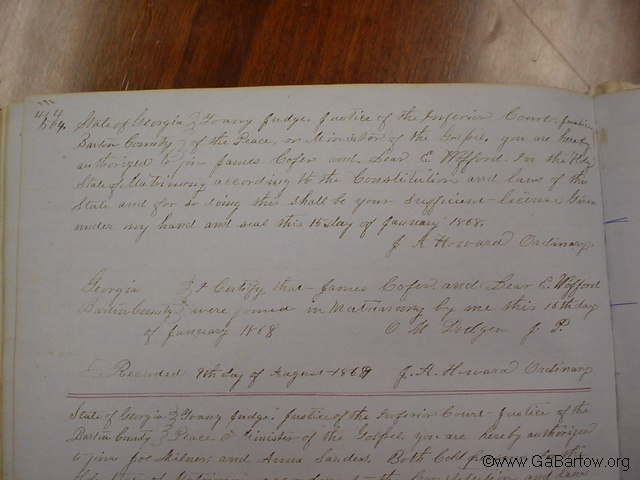 State of Georgia } To any Judge. Justice of the Inferior Court. Justice
Bartow County } of the Peace, or Minister of the Gospel. you are hereby
authorized to join James Cofer and Lear E. Wofford. In the Holy
State of Matrimony according to the Constitution and laws of this
State and for so doing this shall be your sufficient license Given
under my hand and seal this 15 day of January 1868.
J A Howard Ordinary.
Georgia } I Certify that James Cofer and Lear E. Wofford
Bartow County } were joined in Matrimony by me this 15th day
of January 1868 J. P.
Recorded 9th day of August 1869 J. A. Howard Ordinary
State of Georgia } To any Judge. Justice of the Inferior Court - Justice of the
Bartow County } Peace or Minister of the Gospel. you are hereby authorized
to join Joe Milner. and Anna Sanders. Both Cold persons in the
©www.GaBartow.org